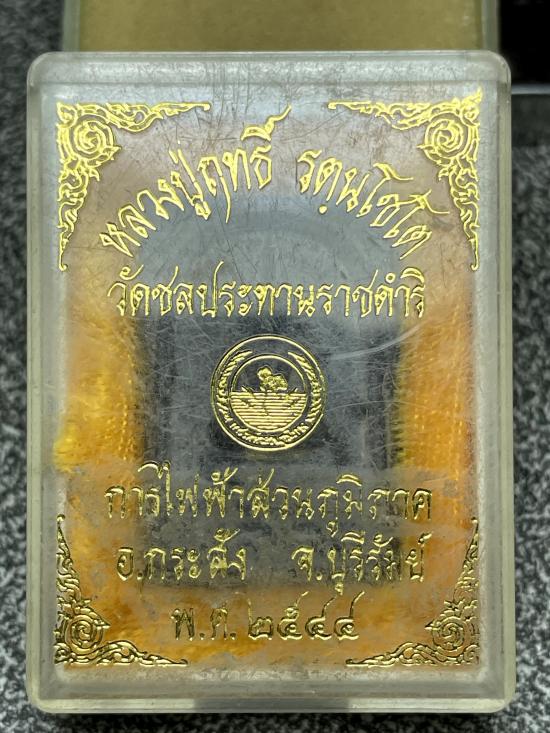 หลวงปู่ฤทธิ์ รตฺนโชโต
วัดชลประทานราชดำริ
การไฟฟ้าส่วนภูมิภาค
อ.กระสัง จ.บุรีรัมย์
พ.ศ. ๒๕๔๔